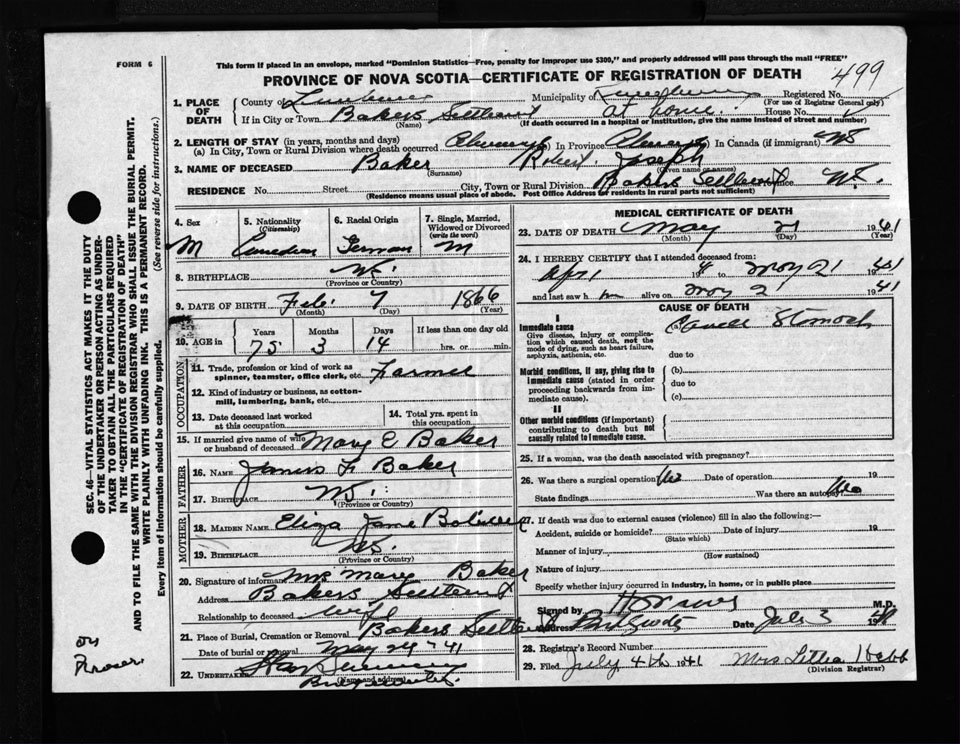 FORM 6
This form if placed in an envelope, marked "Dominion Statistics—Free, penalty for improper use $300," and properly addressed will pass through the mail "FREE"
PROVINCE OF NOVA SCOTIA—CERTIFICATE OF REGISTRATION OF DEATH
499
1. PLACE OF DEATH
County of Lunenburg Municipality of Registered No.
(For use of Registrar General only)
If in City or Town Bakers Settlement At home. House No.
(Name) (If death occurred in a hospital or institution, give the name instead of street and number)
2. LENGTH OF STAY (in years, months and days)
(a) In City, Town or Rural Division where death occurred Always In Province Always In Canada (if immigrant)
3. NAME OF DECEASED Baker Robert Joseph
(Surname) (Given name or names)
RESIDENCE No. Street City, Town or Rural Division Bakers Settlement Province N.S.
(Residence means usual place of abode. Post Office Address for residents in rural parts not sufficient)
4. Sex
M
5. Nationality
(Citizenship)
Canadian
6. Racial Origin
German
7. Single, Married, Widowed or Divorced
(write the word)
M
8. BIRTHPLACE N.S.
(Province or Country)
9. DATE OF BIRTH Feb. 7 1866
(Month) (Day) (Year)
10. AGE in Years Months Days If less than one day old
75 3 14 hrs. or min.
OCCUPATION
11. Trade, profession or kind of work as spinner, teamster, office clerk, etc. Farmer
12. Kind of industry or business, as cotton-mill, lumbering, bank, etc.
13. Date deceased last worked at this occupation
14. Total yrs. spent in this occupation
15. If married give name of wife or husband of deceased Mary E Baker
FATHER
16. NAME James F. Baker
17. BIRTHPLACE N.S.
MOTHER
18. MAIDEN NAME Eliza Jane
19. BIRTHPLACE N.S.
(Province or Country)
20. Signature of informant Mrs Mary Baker
Address Bakers Settlement
Relationship to deceased Wife
21. Place of Burial, Cremation or Removal Bakers Settlement
Date of burial or removal May 24 '41
22. UNDERTAKER
(Name and address)
Bridgewater
MEDICAL CERTIFICATE OF DEATH
23. DATE OF DEATH May 21 1941
(Month) (Day) (Year)
24. I HEREBY CERTIFY that I attended deceased from:
Apr 1 194 to May 21 1941
and last saw h im alive on May 21 1941
CAUSE OF DEATH
I
Immediate cause
Give disease, injury or complication which caused death, not the mode of dying, such as heart failure, asphyxia, asthenia, etc.
(a) Cancer Stomach
due to
Morbid conditions, if any, giving rise to immediate cause (stated in order proceeding backwards from immediate cause).
(b)
due to
(c)
II
Other morbid conditions (if important) contributing to death but not causally related to immediate cause.
25. If a woman, was the death associated with pregnancy?
26. Was there a surgical operation No Date of operation 19
State findings Was there an autopsy No
27. If death was due to external causes (violence) fill in also the following:—
Accident, suicide or homicide? Date of injury 19
(State which)
Manner of injury
(How sustained)
Nature of injury
Specify whether injury occurred in industry, in home, or in public place
Signed by M.D.
Address Bridgewater Date July 3 19
28. Registrar's Record Number
29. Filed July 4th 1941 Mrs
(Division Registrar)
SEC. 46—VITAL STATISTICS ACT MAKES IT THE DUTY
OF THE UNDERTAKER OR PERSON ACTING AS UNDER-
TAKER TO OBTAIN ALL THE PARTICULARS REQUIRED
IN THE "CERTIFICATE OF REGISTRATION OF DEATH"
AND TO FILE THE SAME WITH THE DIVISION REGISTRAR WHO SHALL ISSUE THE BURIAL PERMIT.
WRITE PLAINLY WITH UNFADING INK. THIS IS A PERMANENT RECORD.
Every item of information should be carefully supplied. (See reverse side for instructions.)